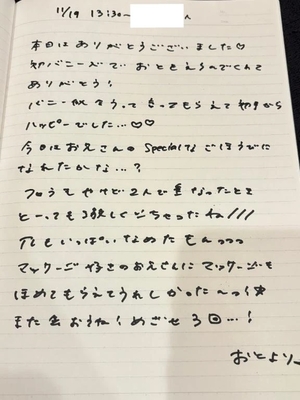 11/19 13:30〜 ん
本日はありがとうございました♡
初バニー姿でおともえらんでくれて
ありがとう!
バニー似合うって言ってもらえて初手から
ハッピーでした…♡♡
今日はお兄さんのSpecialなごほうびに
なれたかな…?
フロうも やけど2人で重なったとき
とーっても激しくごちゃったね///
穴もいっぱいなめたもんっっっ
マッサージ好きのお兄さんにマッサージも
ほめてもらえてうれしかった〜っ!☆
また会おうね!めざせ3回…!
おとより